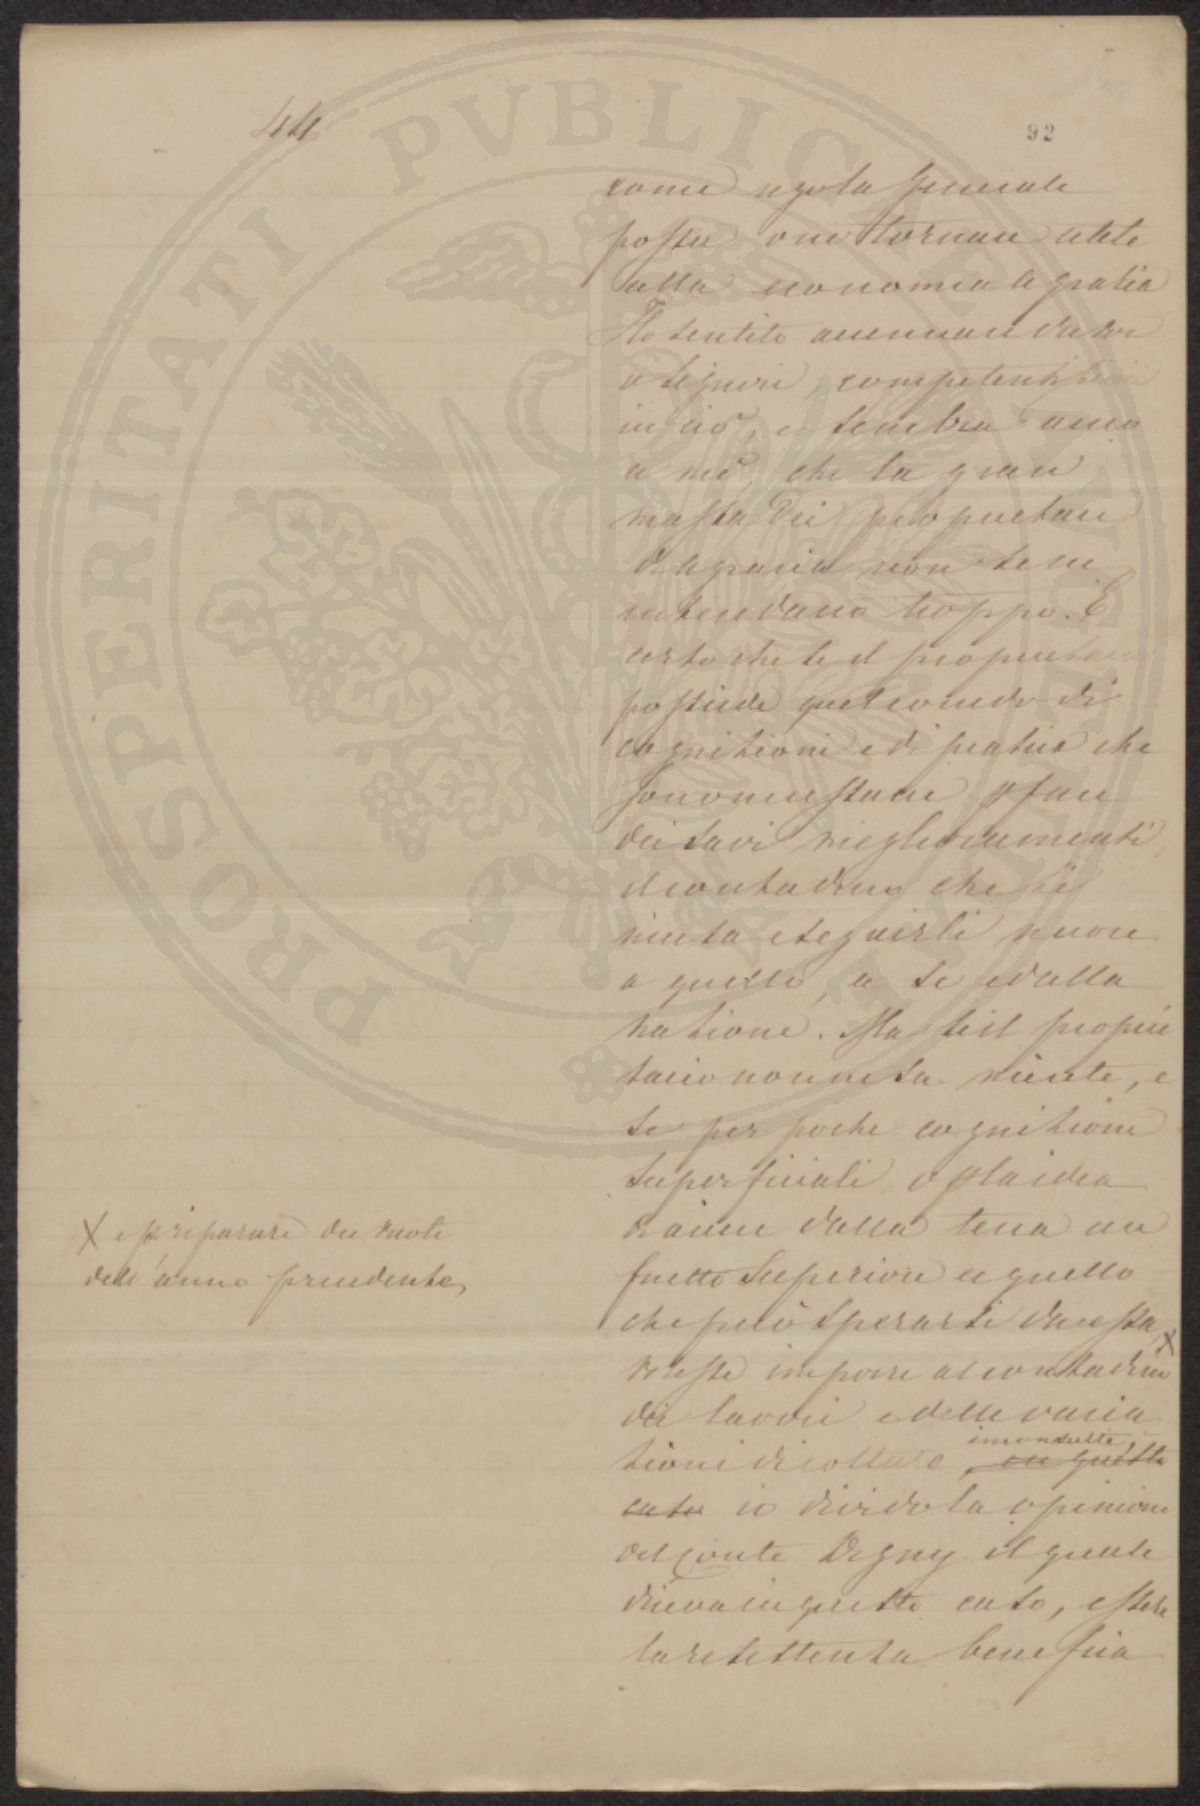 44
92
come regola generale
possa ora tornare utile
alla economia agraria
Ho sentito accennare da voi
o Signori, competentissimi
in ciò, e sembra anco
a me che la gran
massa dei proprietari
di agraria non se ne
intendano troppo. È
certo che se il proprietario
possiede quel corredo di
cognizioni e di pratica che
sono necessarie p fare
dei savi miglioramenti,
il contadino che si
rifiuta eseguirli nuoce
a quello, a se e alla
nazione. Ma se il proprie
tario non ne sa niente, e
se per poche cognizioni
superficiali, o p la idea
trarre dalla terra un
frutto superiore a quello
che può sperarsi da essa, X
volesse imporre al contadino
dei lavori e delle varia
zioni di colture, inconsulte,
in questo
caso io divido la opinione
del Conte Degny il quale
diceva in questo caso, essere
la resistenza benefica
X e riparare den vuote
dell'anno precedente,
PROSPERITATI PVBLICAE